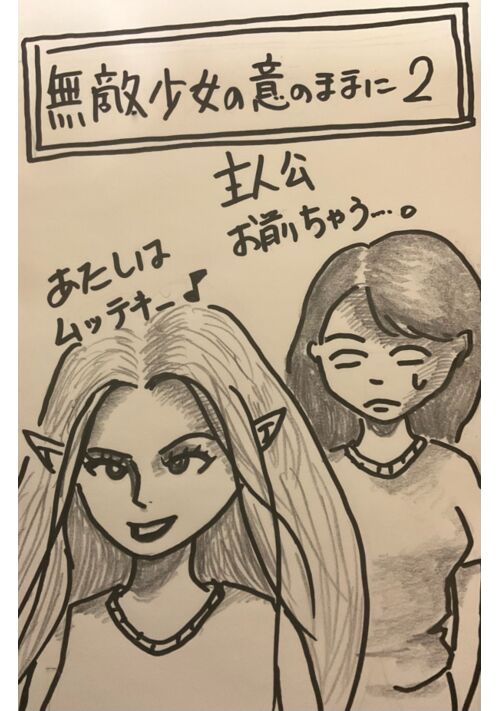 無敵少女の意のままに2
主人公
お前ちゃう…。
あたしは
ムッテキー♪